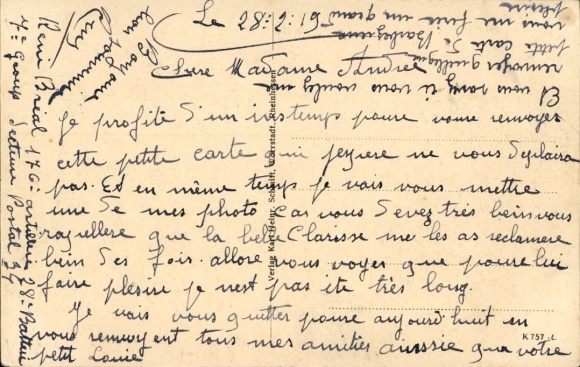 Le 28:2:1919
Chere Madame Andree
Je profite d'un instemps pour voure renvoyer
cette petite carte qui jespere ne vous deplaira
pas. Et en même temps je vais vous mettre
une de mes photo Car vous devez très bein vous
rapellere que la belle Clarisse me les as reclamere
bein des fois. allore vous voyer que poure lui
faire plesire je n'est pas ete très long.
Je vais vous quitter poure aujourd'huit en
vous renvoyent tous mes amitier aussie que votre
petit Louie
Et vous savez si vous voulez me
renvoyer quelque
petite carte de
vous me faire un grand
plesire
René Breal 176e artilerie 28e Batterie
7e Groupe Secteure Postal 34
Verlag Karl Heinr. Schmitt, Wörrstadt, Rheinhessen
K 757 L